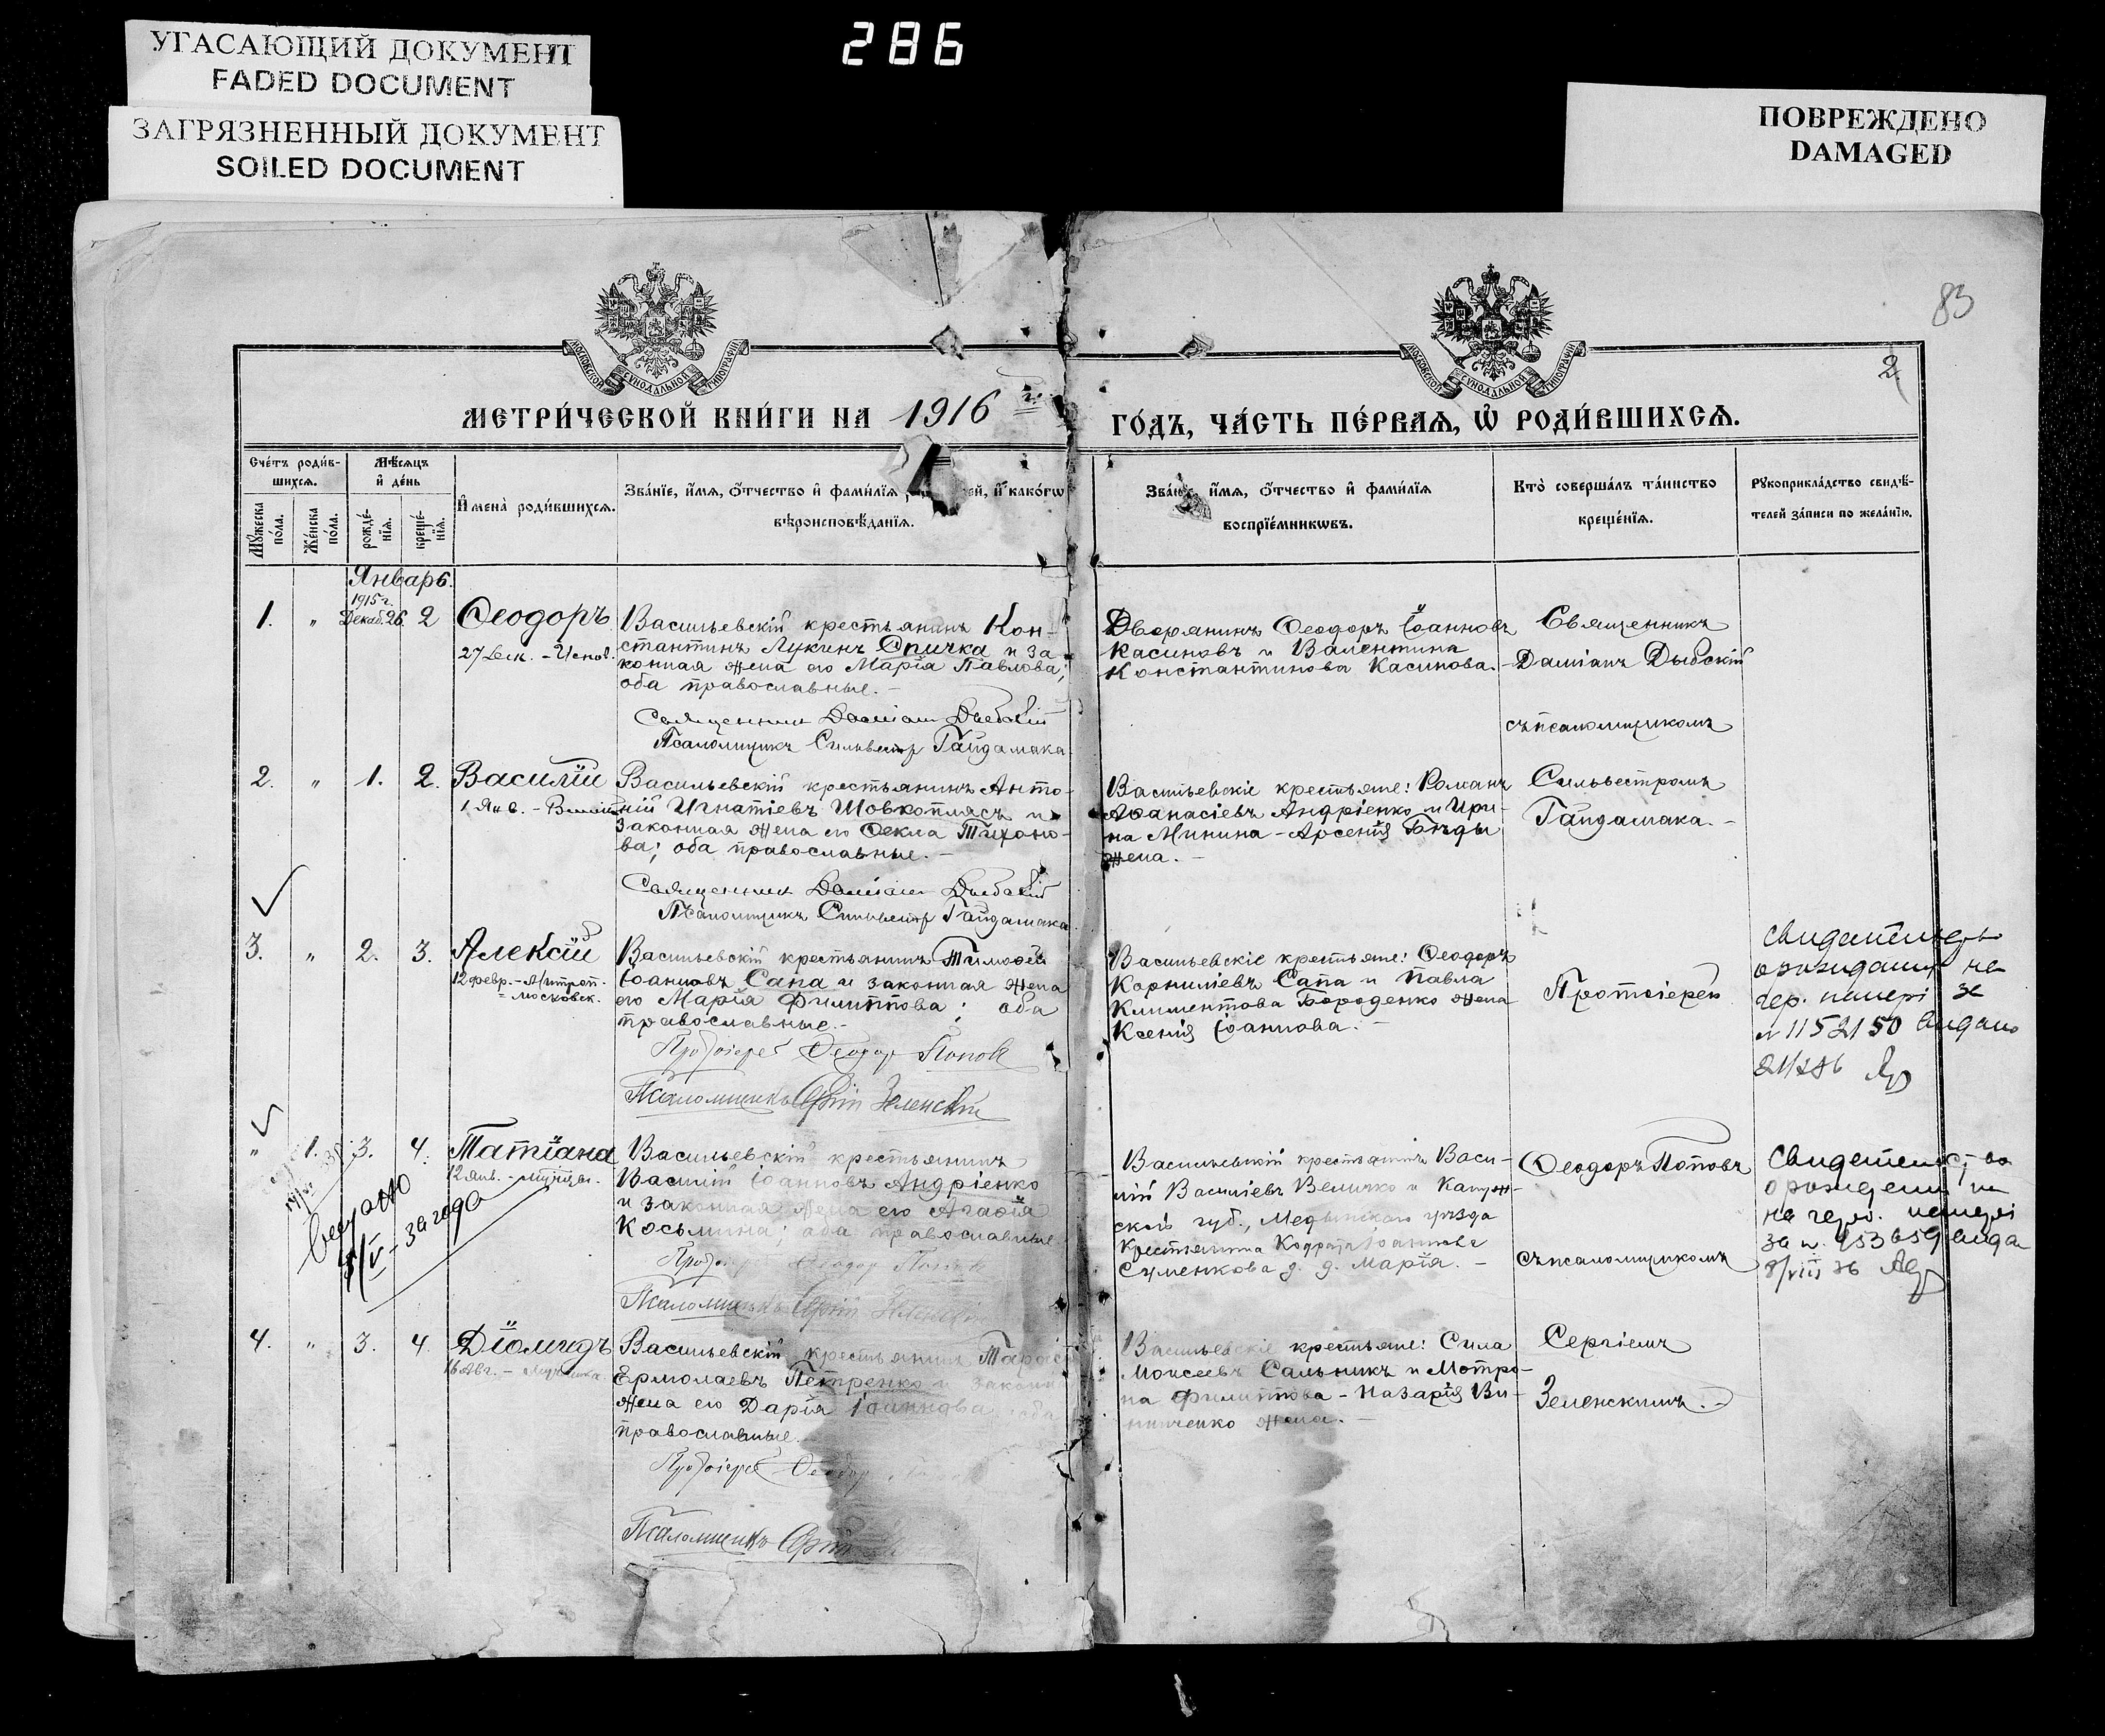 УГАСАЮЩИЙ ДОКУМЕНТ
FADED DOCUMENT
ЗАГРЯЗНЕННЫЙ ДОКУМЕНТ
SOILED DOCUMENT
286
ПОВРЕЖДЕНО
DAMAGED
83
2.
МОСКОВСКОЙ СѴНОДАЛЬНОЙ ТИПОГРАФІИ
МЕТРИ́ЧЕСКОЙ КНИ́ГИ НА 1916 г.
МОСКОВСКОЙ СѴНОДАЛЬНОЙ ТИПОГРАФІИ
ГО́ДЪ, ЧА́СТЬ ПЕ́РВАѦ, Ѡ҆ РОДИ́ВШИХСѦ.
Сче́тъ роди́в-
шихсѧ.
Мꙋ́жеска по́ла.
Же́нска по́ла.
Мѣ́сѧцъ
и҆ де́нь
рожде́-
нїѧ.
креще́-
нїѧ.
И҆мена̀ роди́вшихсѧ.
Зва́нїе, и҆́мѧ, ѻ҆́тчество и҆ фами́лїѧ
ей, и҆ како́гѡ
вѣроисповѣ́данїѧ.
Зва́нїе, и҆́мѧ, ѻ҆́тчество и҆ фами́лїѧ
воспрїе́мникѡвъ.
Кто̀ соверша́лъ та́инство
креще́нїѧ.
Рꙋкоприкла́дство свидѣ́-
телей за́писи по жела́нїю.
Январь.
1. " 1915 г. Декаб. 26. 2 Ѳеодоръ
27 Дек. - Испов.
Васильевскій крестьянинъ Кон-
стантинъ Лукинъ Спичка и за-
конная жена его Марія Павлова;
оба православные. -
Священникъ Даміанъ Дыбскій
Псаломщикъ Сильвестр Гайдамака
Дворянинъ Ѳеодоръ Іоанновъ
Касиновъ и Валентина
Константинова Касинова. -
Священникъ
Даміанъ Дыбскій
съ псаломщикомъ
2. " 1. 2. Василій
1 Янв.
Васильевскій крестьянинъ Анто-
ній Игнатіевъ Шовкоплясъ и
законная жена его Ѳекла Тихоно-
ва; оба православные. -
Священникъ Даміанъ Дыбскій
Псаломщикъ Сильвестр Гайдамака
Васильевскіе крестьяне: Романъ
Аѳанасіевъ Андріенко и Ири-
на Минина - Арсенія Бѣды
жена. -
Сильвестромъ
Гайдамака. -
3. " 2. 3. Алексій
12 февр. - Митроп.
= московск.
Васильевскій крестьянинъ Тимоѳей
Іоанновъ Сапа и законная жена
его Марія Филиппова; оба
православные. -
Протоіерей Ѳеодор Поповъ
Псаломщикъ Сергій Зеленскій
Васильевскіе крестьяне: Ѳеодоръ
Корниліевъ Сапа и Павла
Климентова Бороденко жена
Ксенія Іоаннова. -
Протоіерей
№ 1152150 видано
" 1. 3. 4. Татіана
12 янв. - мучицы.
видано
5/V - загса
Васильевскій крестьянинъ
Василій Іоанновъ Андріенко
и законная жена его Агаѳія
Косьмина; оба православные
Псаломщикъ Сергій Зеленскій
Васильевскій крестьянинъ Васи-
лій Василіевъ Величко и Калуж-
ской губ., Медынскаго уѣзда
крестьянина Кодрата Іоаннова
Сименкова д. д. Марія. -
Ѳеодоръ Поповъ
съ псаломщикомъ
4. " 3. 4. Діомидъ
16 Авг. - мученика
Васильевскій крестьянинъ
Ермолаевъ Петренко и законн
жена его Дарія Іоаннова; оба
православные.
Протоіерей Ѳеодор
Псаломщикъ Сергій
Васильевскіе крестьяне: Сила
Моисеевъ Сальникъ и Мотро-
на Филиппова - Назарія Ви-
ниченко жена. -
Сергіемъ
Зеленскимъ. -